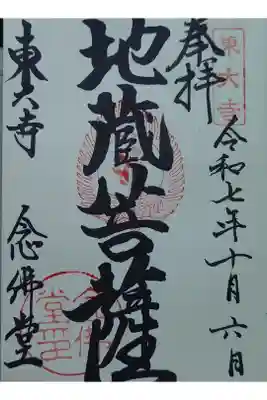 東大寺
奉拝
令和七年十月六日
地蔵菩薩
東大寺
念佛堂
念佛堂印